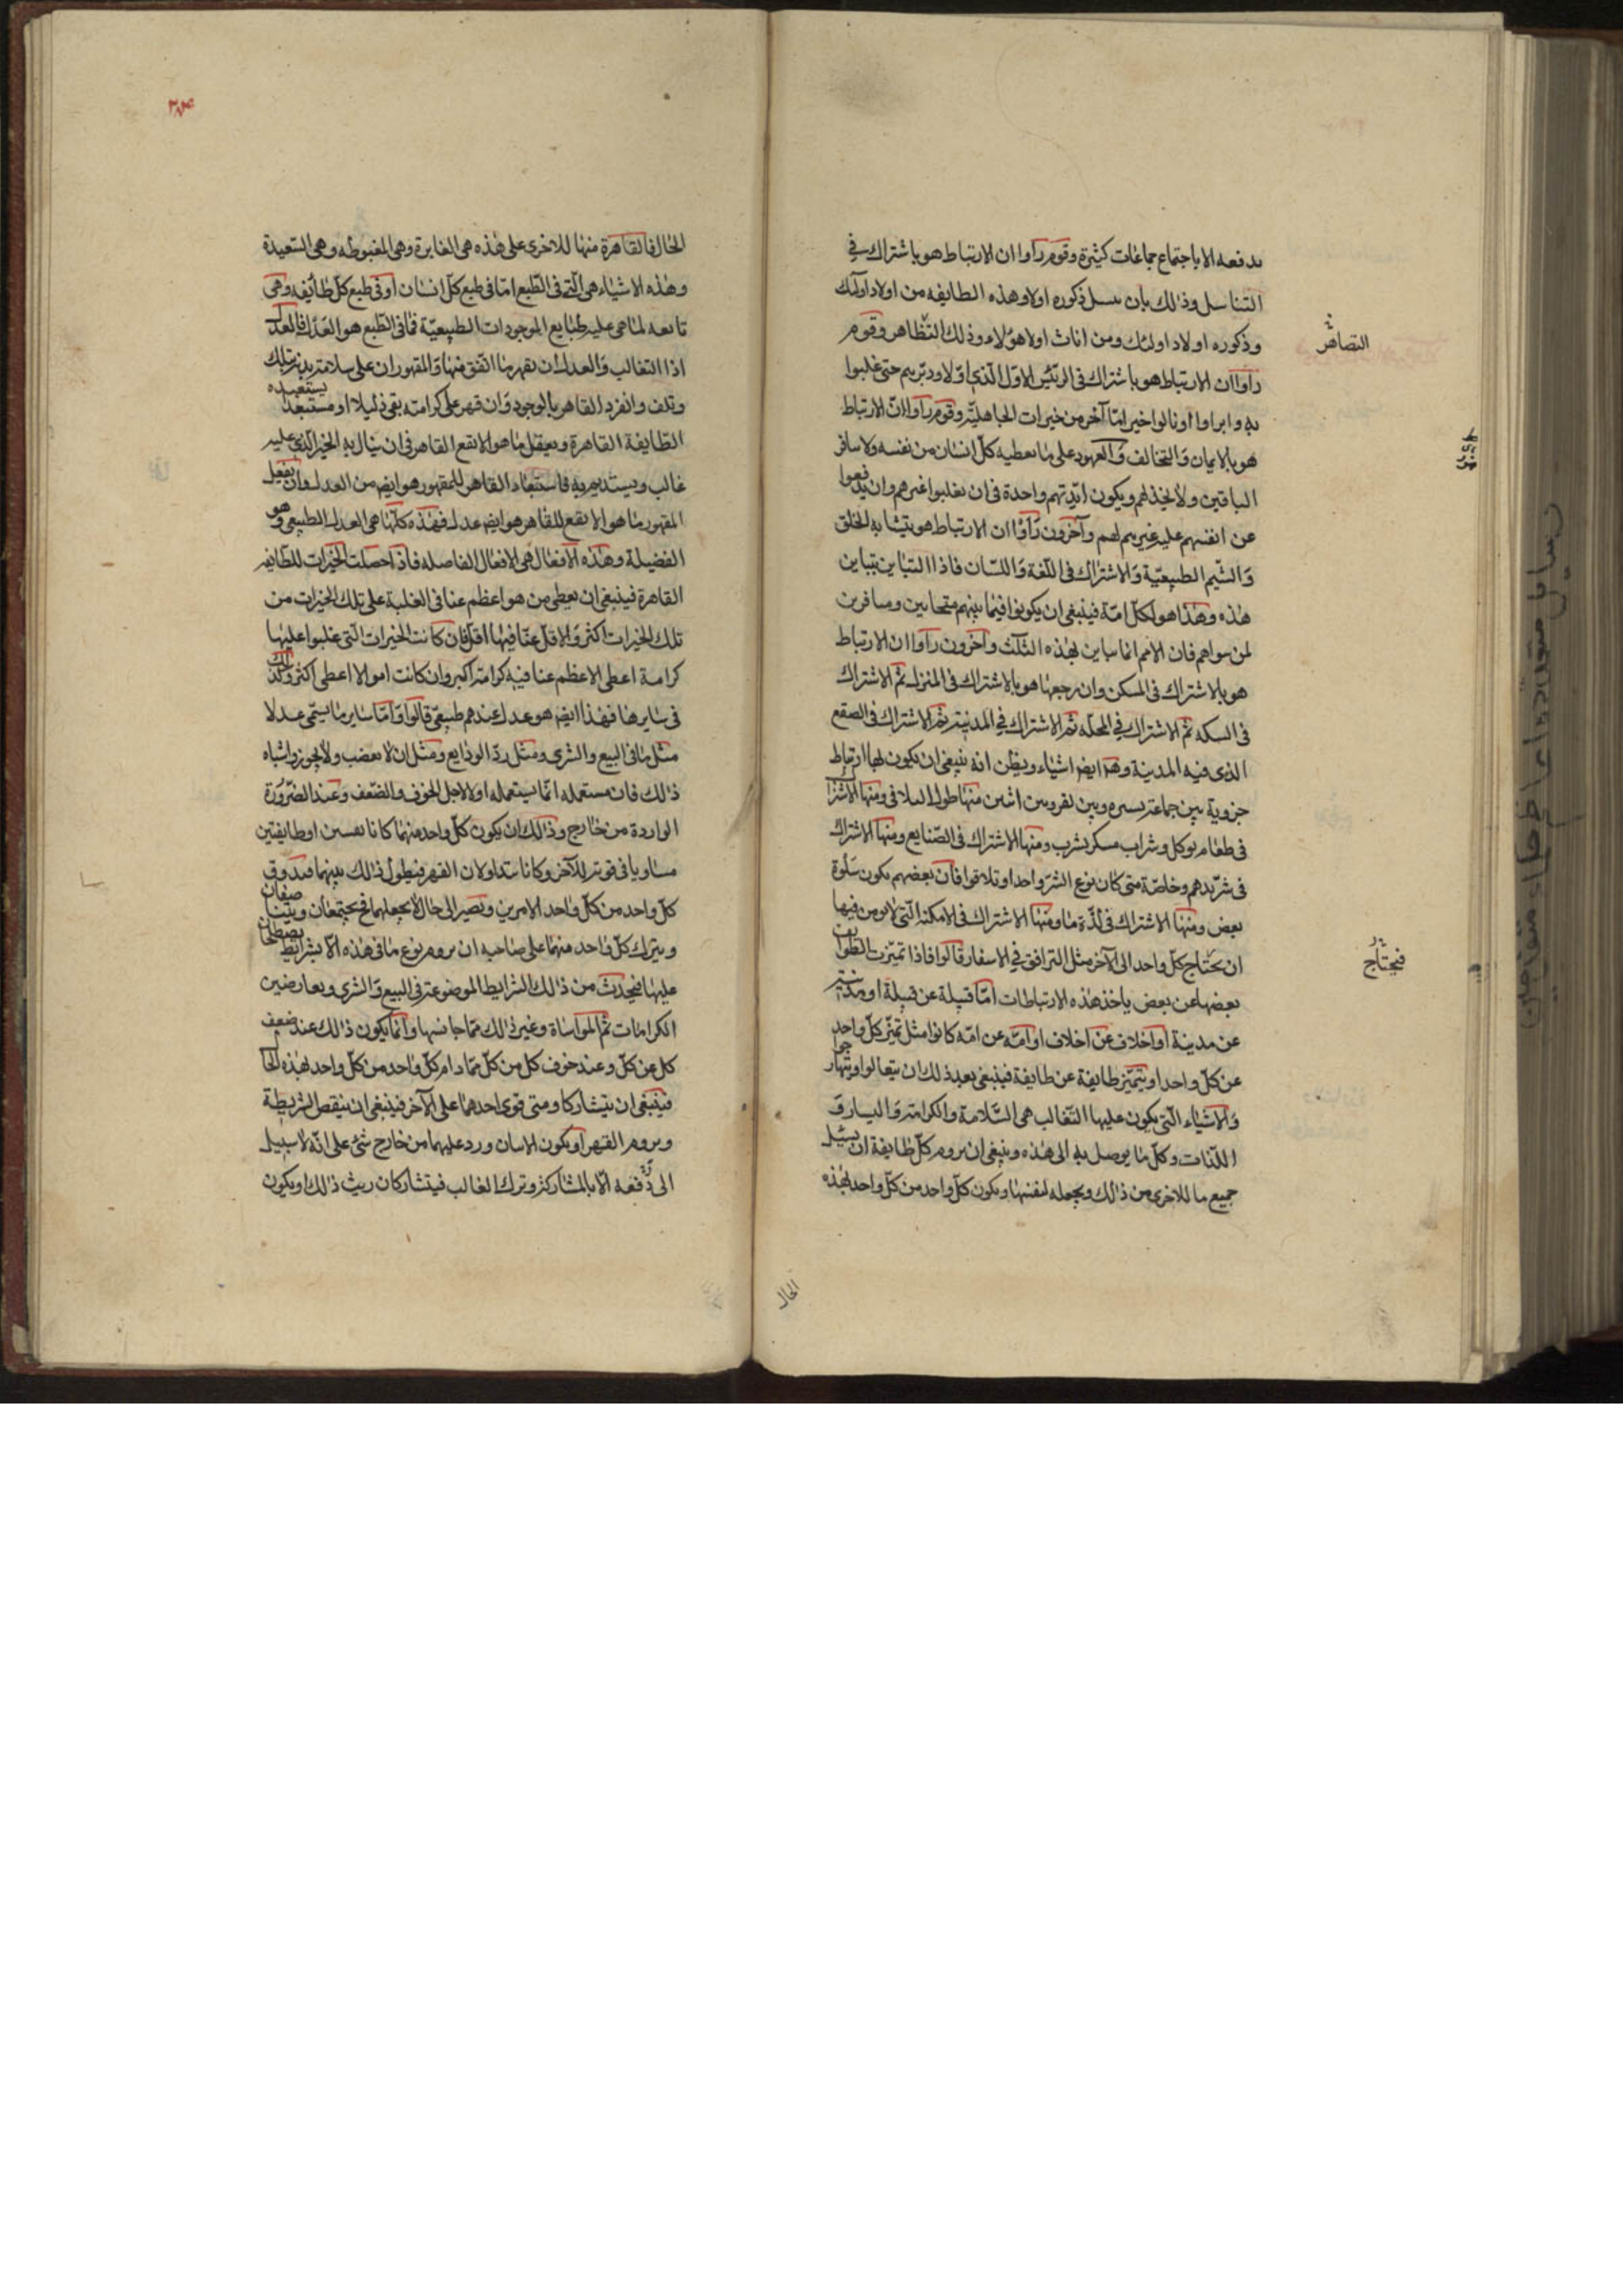 يدفعه الا باجتماع جماعات كثيرة وقوم رأوا ان الارتباط هو باشتراك في
التناسل وذلك بان ينسل ذكوره اولاد هذه الطايفه من اولاد اولئك
وذكوره اولاد اولئك ومن اناث اولاد هؤلاء وذلك التظاهر وقوم
التصاهر
رأوا ان الارتباط هو باشتراك في الرئيس الاول الذي اولا ودبرهم حتى غلبوا
به وابراوا او نالوا خيرا ما آخر من خيرات الجاهلية وقوم رأوا ان الارتباط
هو بالايمان والتخالف والعهود على ما يعطيه كل انسان من نفسه ولا سافر
الباقين ولا يخذلهم ويكون ايديهم واحدة في ان يغلبوا غيرهم وان يدفعوا
عن انفسهم عليه غيرهم لهم وآخرون رأوا ان الارتباط هو بتشابه الخلق
والشيم الطبيعية والاشتراك في اللغة واللسان فاذا التباين بتباين
هذه وهذا هو لكل امة فينبغي ان يكونوا فيما بينهم متحابين ومنافرين
لمن سواهم فان الامم انما تباين بهذه الثلث وآخرون رأوا ان الارتباط
هو بالاشتراك في المسكن وان رجعها هو بالاشتراك في المنزل ثم الاشتراك
في السكه ثم الاشتراك في المحله ثم الاشتراك في المدينة ثم الاشتراك في الصقع
الذي فيه المدينة وهنا ايضا اشياء ويظن انه ينبغي ان يكون لها ارتباط
جزوية بين جماعة يسيره وبين نفر وبين اثنين منها طول التلاقي ومنها الاشترا
في طعام يوكل وشراب مسكر يشرب ومنها الاشتراك في الصنايع ومنها الاشتراك
في شر يدهم وخاصة متى كان نوع الشر واحدا وتلاقوا فان بعضهم يكون سلوة
بعض ومنها الاشتراك في لذة ما ومنها الاشتراك في الامكنه التي لا يومن فيها
ان يحتاج كل واحد الى الآخر مثل الترافق في الاسفار قالوا فاذا تميزت الطوايف
فيحتاج
بعضها عن بعض ياخذ هذه الارتباطات اما قبيلة عن قبيلة او مدينة
عن مدينة او اخلاف عن اخلاف او امة عن امه كانوا مثل تميز كل واحد
عن كل واحد او يتميز طايفة عن طايفة فينبغي بعد ذلك ان يتغالبوا ويتهارجوا
والاشياء التي يكون عليها التغالب هي السلامة والكرامة واليسار و
اللذات وكل ما يوصل به الى هذه وينبغي ان يروم كل طايفة ان يسلب
جميع ما للاخرى من ذلك ويجعله لنفسها ويكون كل واحد من كل واحد بهذه
الحال
٣٨٤
الحال فالقاهرة منها للاخرى على هذه هي الفايزة وهي المغبوطه وهي السعيدة
وهذه الاشياء هي التي في الطبع اما في طبع كل انسان او في طبع كل طايفه وهي
تابعه لما هي عليه طبايع الموجودات الطبيعية فما في الطبع هو العدل فالعدل
اذا التغالب والعدل ان يقهر ما اتفق منها والمقهور ان على سلامة بدنه تلك
وتلف وانفرد القاهر بالوجود وان قهر على كرامته بقي ذليلا او مستعبدا
يستعبده
الطايفة القاهرة ويعقل ما هو الانفع للقاهر في ان ينال به الخير الذي عليه
غالب ويستديم به فاستعباد القاهر للمقهور هو ايضا من العدل وان يفعل
المقهور ما هو الانفع للقاهر هو ايضا عدل فهذه كلها هي العدل الطبيعي وهو
الفضيلة وهذه الافعال هي الافعال الفاضله فاذا حصلت الخيرات للطايفه
القاهرة فينبغي ان يعطى من هو اعظم عنا في الغلبة على تلك الخيرات من
تلك الخيرات اكثر والاقل عنا فيها اقل فان كانت الخيرات التي غلبوا عليها
كرامة اعطى الاعظم عنا فيه كرامة اكبر وان كانت اموالا اعطى اكثر وكذلك
في سايرها فهذا ايضا هو عدل عندهم طبيعي قالوا واما ساير ما يسمى عدلا
مثل ما في البيع والشرى ومثل رد الودايع ومثل ان لا يغضب ولا يجوز واشباه
ذلك فان مستعمله انما يستعمله اولا لاجل الخوف والضعف وعند الضرورة
الواردة من خارج وذلك ان يكون كل واحد منهما كانا نفسين او طايفتين
مساويا في قوته للآخر وكانا يتداولان القهر فيطول ذلك بينهما فيذوق
كل واحد من كل واحد الامرين ويصير الى حال لا يحتملها فحينئذ يجتمعان ويتناصفان
ويترك كل واحد منهما على صاحبه ان يروم نوع ما في هذه الا بشرايط يصطلحان
عليها فيحدث من ذلك الشرايط الموضوعة في البيع والشرى ويعارضين
الكرامات ثم المواساة وغير ذلك مما جانسها وانما يكون ذلك عند ضعف
كل عن كل وعند خوف كل من كل فما دام كل واحد من كل واحد بهذه الحا
فينبغي ان يتشاركا ومتى قوي احدهما على الآخر فينبغي ان ينقص الشريطة
ويروم القهر او يكون الاسان ورد عليهما من خارج شئ على انه لا سبيل
الى دفعه الا بالمشاركة وترك التغالب فيتشاركان ريث ذلك او يكون